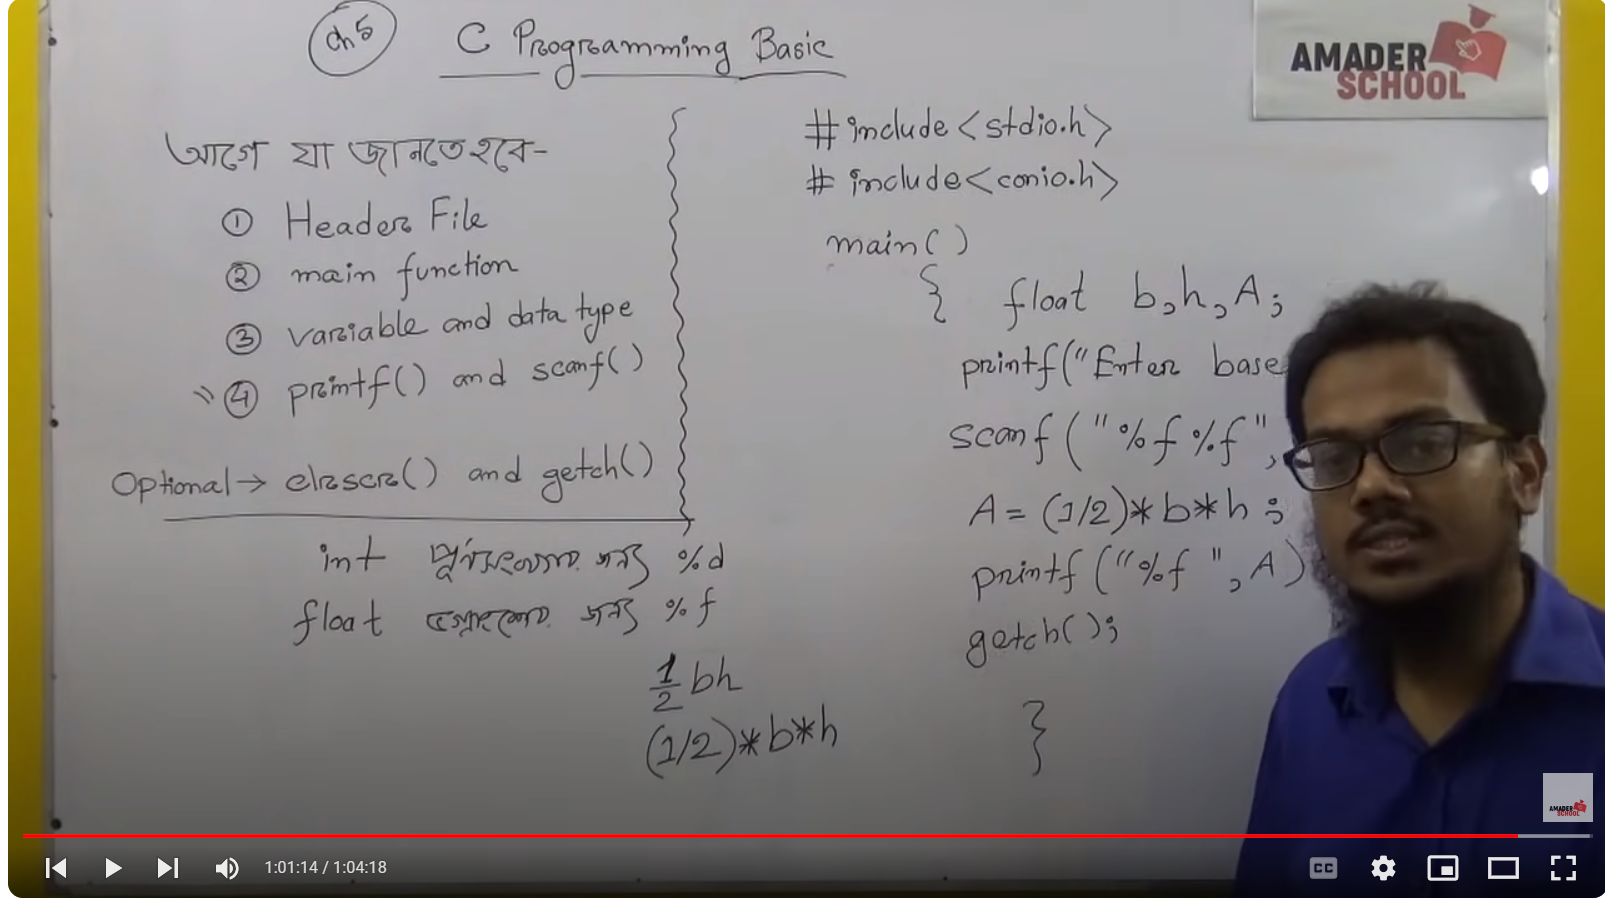 Ch 5
C Programming Basic
AMADER
SCHOOL
আগে যা জানতে হবে-
① Header File
② main function
③ variable and data type
④ printf() and scanf()
Optional → clrscr() and getch()
int পূর্ণসংখ্যার জন্য %d
float ভগ্নাংশের জন্য %f
1/2 bh
(1/2)*b*h
#include<stdio.h>
#include<conio.h>
main()
{ float b,h,A;
printf("Enter base
scanf("%f%f",
A=(1/2)*b*h;
printf("%f",A)
getch();
}
AMADER
SCHOOL
1:01:14 / 1:04:18
CC